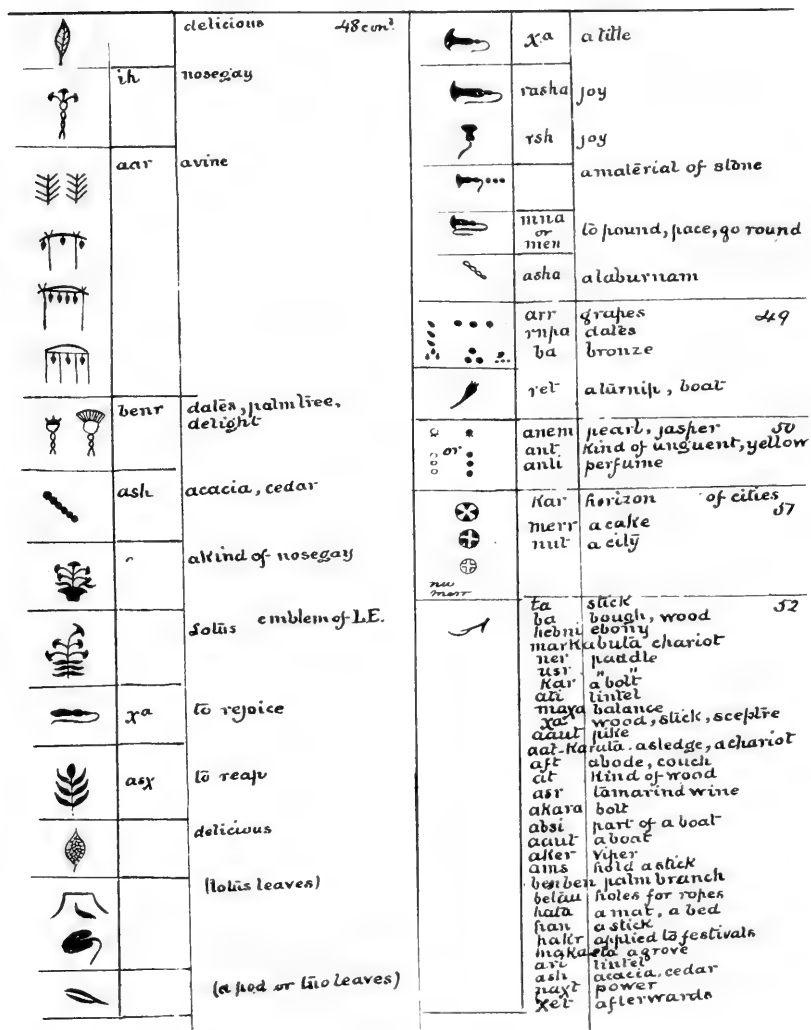 delicious 48 con.d
ih nosegay
aar avine
benr dates, palm tree,
delight
ash acacia, cedar
a kind of nosegay
Lotus emblem of L.E.
χa to rejoice
asχ to reap
delicious
(lotus leaves)
(a pod or two leaves)
χa a title
rasha joy
rsh joy
a material of stone
mna
or
men to pound, pace, go round
asha a laburnam
arr grapes 49
rnpa dates
ba bronze
ret a turnip, boat
anem pearl, jasper 50
or ant kind of unguent, yellow
anti perfume
Kar horizon of cities
51
merr a cake
nut a city
nu
merr
ta stick 52
ba bough, wood
hebni ebony
markabuta chariot
ner paddle
usr " "
Kar a bolt
ati lintel
maχa balance
χa wood, stick, sceptre
aaut pike
aat-Karuta. a sledge, a chariot
aft abode, couch
at kind of wood
asr tamarind wine
akara bolt
absi part of a boat
aaut a boat
aker viper
ams hold a stick
benben palm branch
betau holes for ropes
hata a mat, a bed
han a stick
hakr applied to festivals
makaeta a grove
ari lintel
ash acacia, cedar
naχt power
χet afterwards